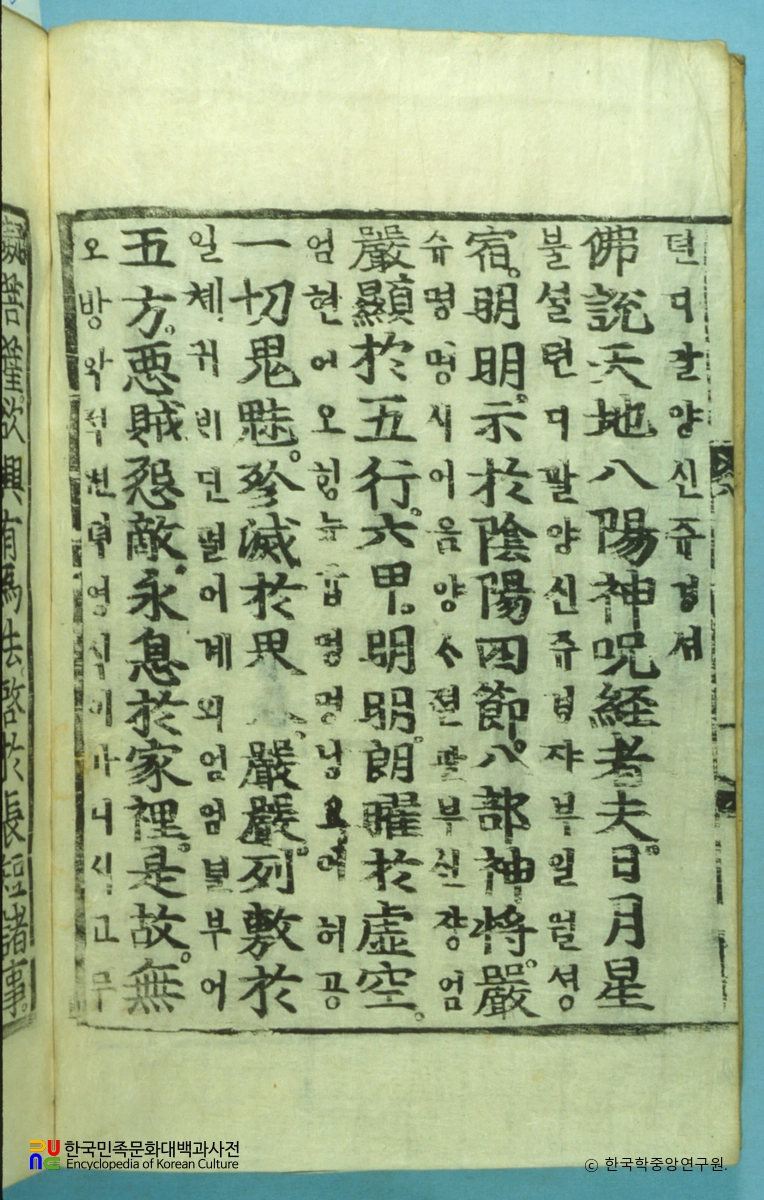 텬디팔양신쥬경셔
佛說天地八陽神呪経者夫。日月星
불셜텬디팔양신쥬경쟈부일월셩
宿。明明。示於陰陽四節。八部神將。嚴
슈명명시어음양ᄉ졀팔부신쟝엄
嚴顯於五行。六甲。明明。朗曜於虛空。
엄현어오힝뉵갑명명낭요어허공
一切鬼魅。殄滅於界 嚴嚴。列敷於
일쳬귀미딘멸어계외엄엄녈부어
五方。惡賊怨敵永息於家裡。是故。無
오방악적원뎍영식어가니시고무
擬菩 欲興有爲法啓於長短諸事。
한국민족문화대백과사전
Encyclopedia of Korean Culture
ⓒ 한국학중앙연구원.